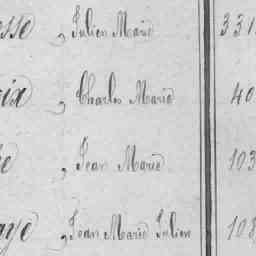 esse , Julien Marie 331
rix , Charles Marie 40
e , Jean Marie 103
aye , Jean Marie Julien 108